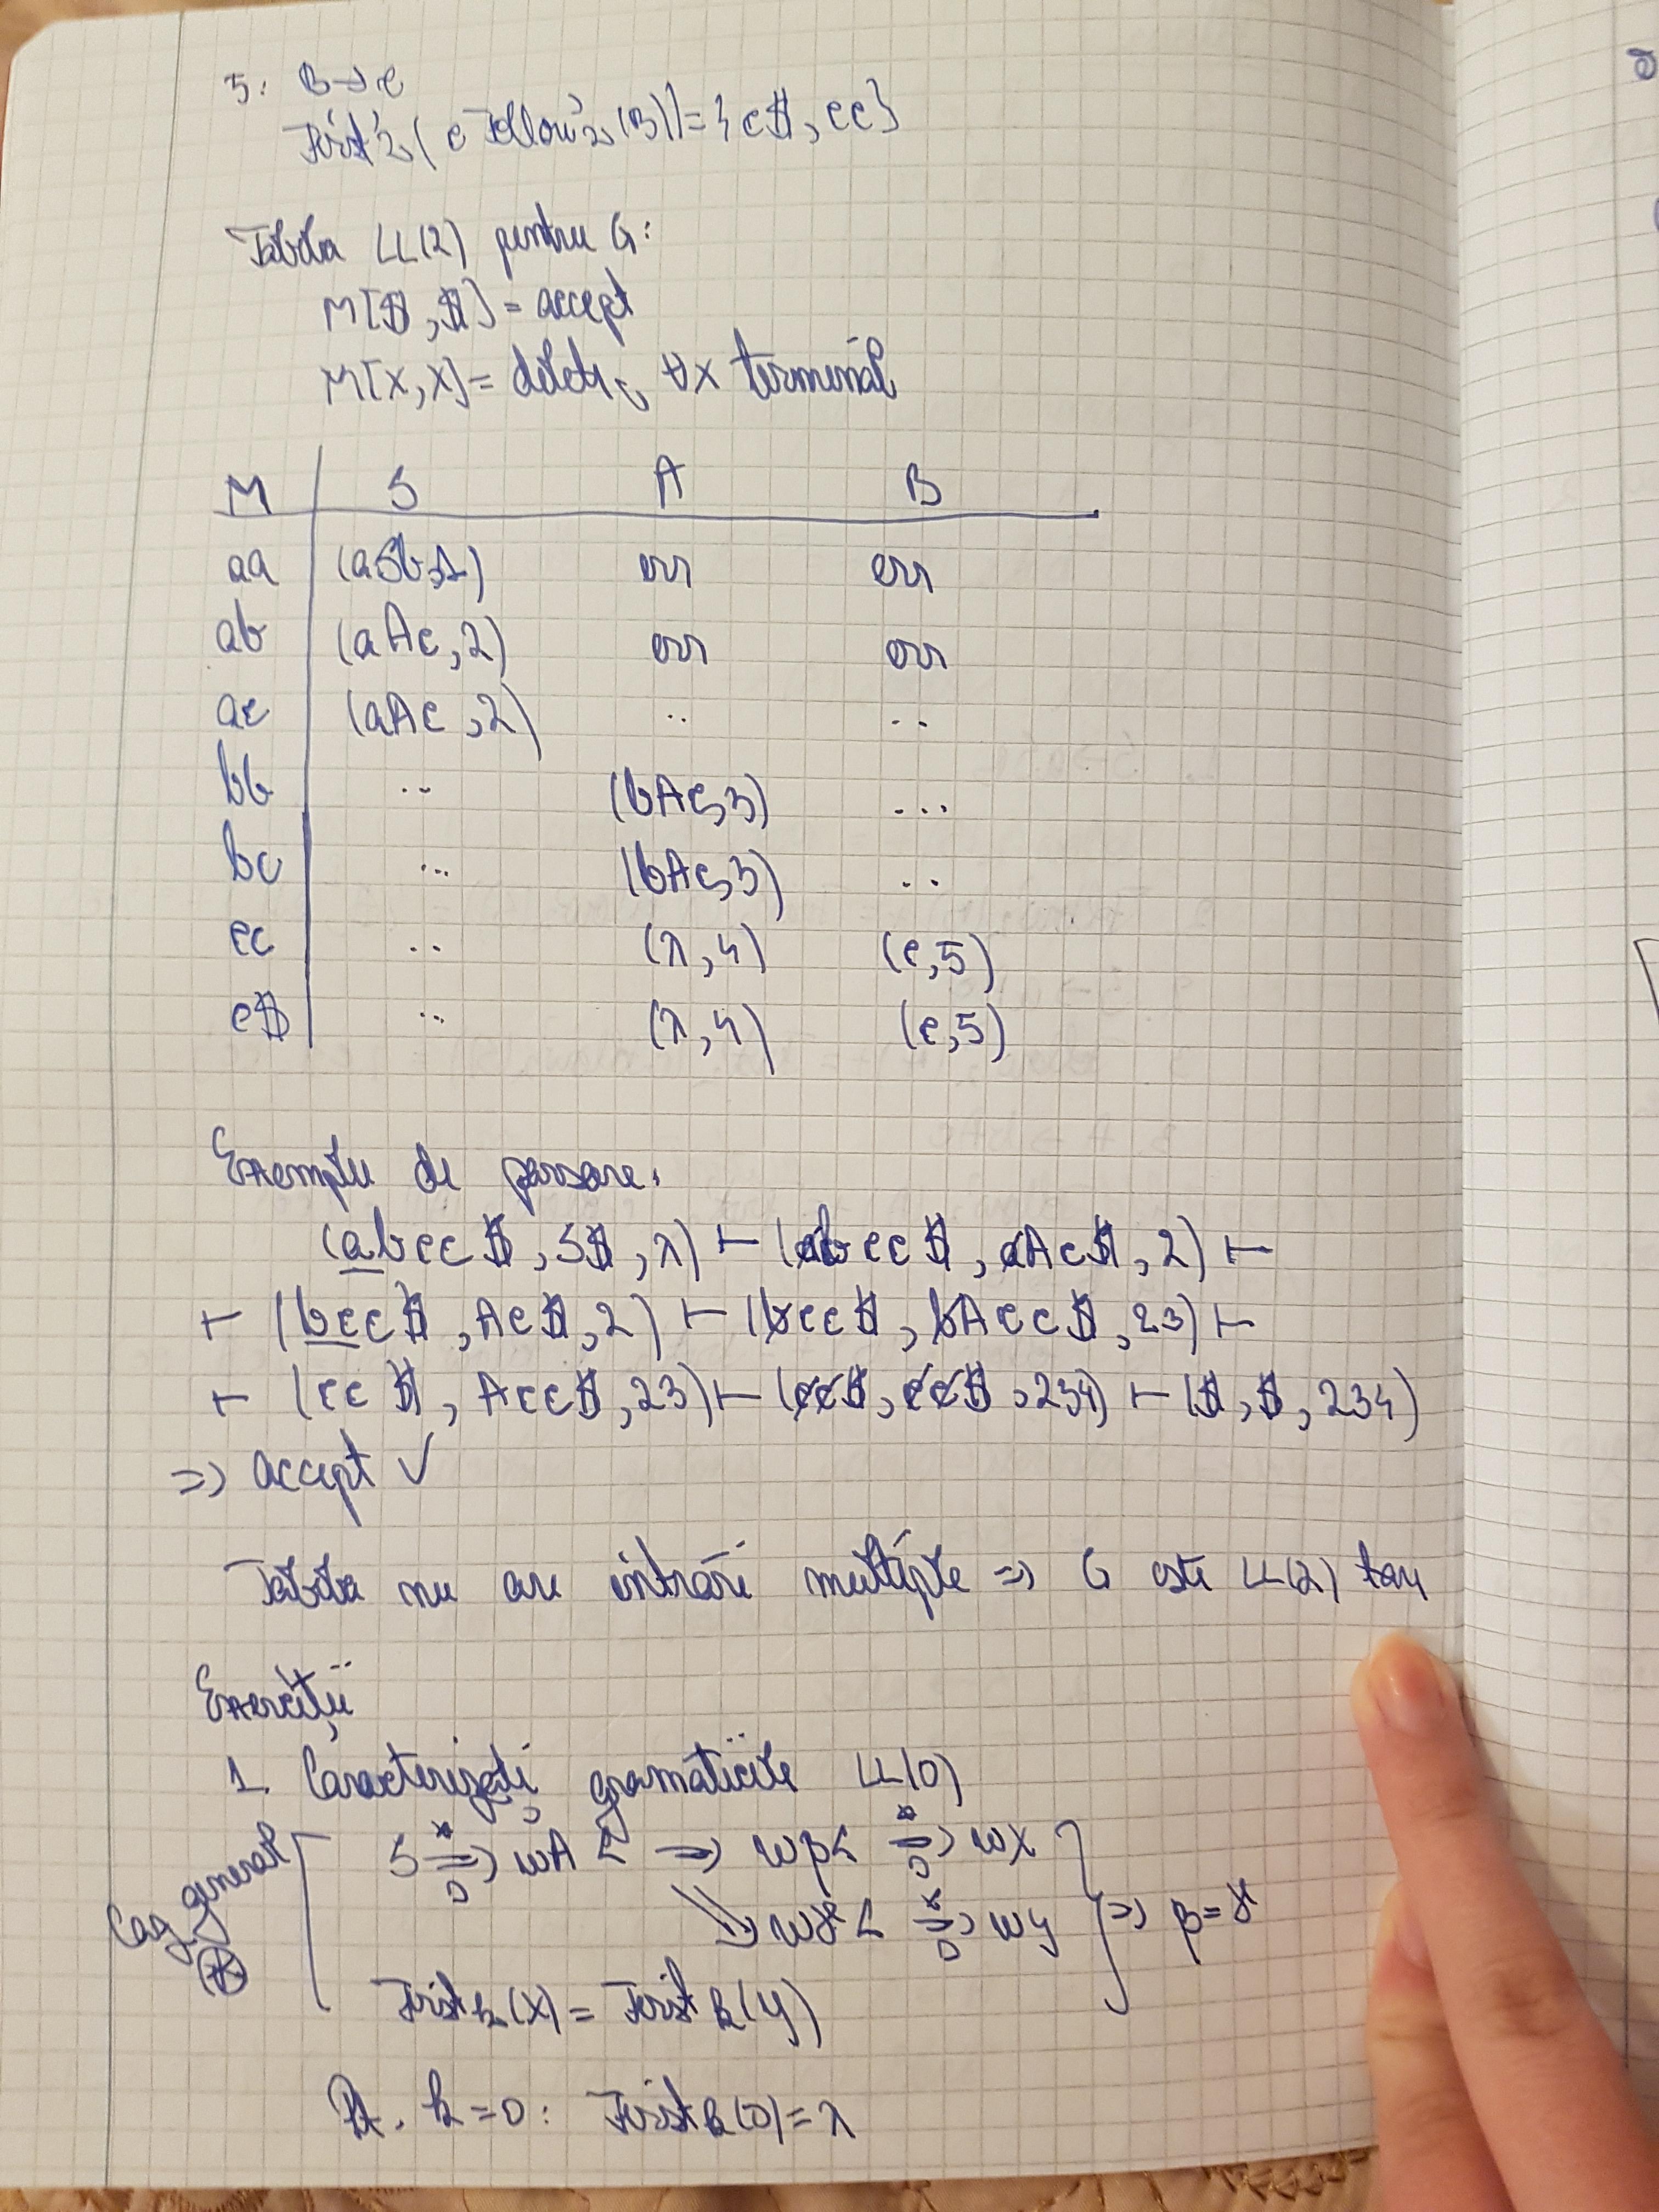 5: B → c
First'₂ ( c Follow'₂ (B)) = { c$, cc }
Tabela LL(2) pentru G:
M[$, $] = accept
M[x, x] = delete, ∀x terminal
M | S A B
aa | (aSb, 1) err err
ab | (aAc, 2) err err
ac | (aAc, 2) .. ..
bb | .. (bAc, 3) ...
bc | ... (bAc, 3) ..
cc | .. (λ, 4) (c, 5)
c$ | .. (λ, 4) (c, 5)
Exemplu de parsare.
(abcc$, S$, λ) ⊢ (abcc$, aAc$, 2) ⊢
⊢ (bcc$, Ac$, 2) ⊢ (bcc$, bAcc$, 23) ⊢
⊢ (cc$, Acc$, 23) ⊢ (cc$, cc$, 234) ⊢ ($, $, 234)
=> accept ✓
Tabela nu are intrări multiple => G este LL(2) tare
Exerciții
1. Caracterizați gramaticile LL(0)
S *=> wA α => wβα *=> wx
Caz general ⊛
=> wγα *=> wy } => β = γ
First k (x) = First k (y)
Pt. k = 0: First k (0) = λ